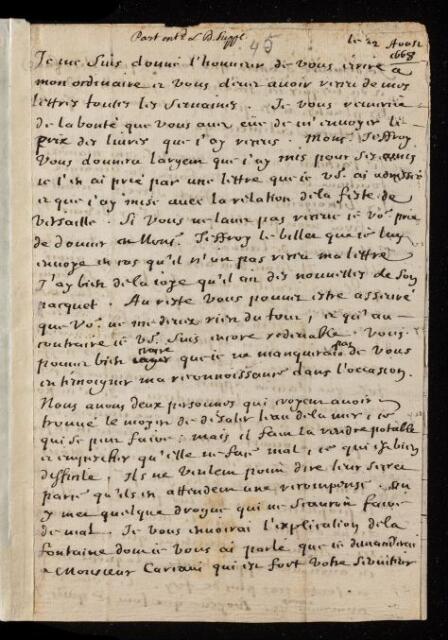 45
le 22 Aoust
1668
Je me suis donné l'honneur de vous escrire a
mon ordinaire et vous devez avoir receu de mes
lettres toutes les semaines. Je vous remercie
de la bonté que vous avez eue de m'envoyer le
prix des livres que j'ay receus. Mons. Jeffroy
vous donnera l'argent que j'ay mis pour ses
je l'en ai prié par une lettre que je vs. ai
et que j'ay mise avec la relation de la feste de
Versaille. Si vous ne l'avez pas receue je vs. prie
de donner Jeffroy le billet que je luy
envoye en cas qu'il n'eu pas receu ma lettre
J'ay bien de la joye qu'il ait des nouvelles de son
pacquet. Au reste vous pouvez estre asseuré
que vs. ne me devez rien du tout, et qu'au
contraire je vs. suis encore redevable. Vous
pouvez bien croire que je ne manqueray pas de vous
en temoigner ma reconnoissance dans l'occasion.
Nous avons deux personnes qui croyent avoir
trouvé le moyen de desaler l'eau de la mer, ce
qui se peut faire; mais il faut la rendre potable
et empescher qu'elle ne fasse mal, ce qui est bien
difficile, ils ne veulent point dire leur secret
parce qu'ils en attendent une recompense. On
y met quelque drogue qui ne scauroit faire
de mal. Je vous envoirai l'explication de la
fontaine dont je vous ai parlé que je demanderai
a Monsieur Cariani qui est fort votre serviteur